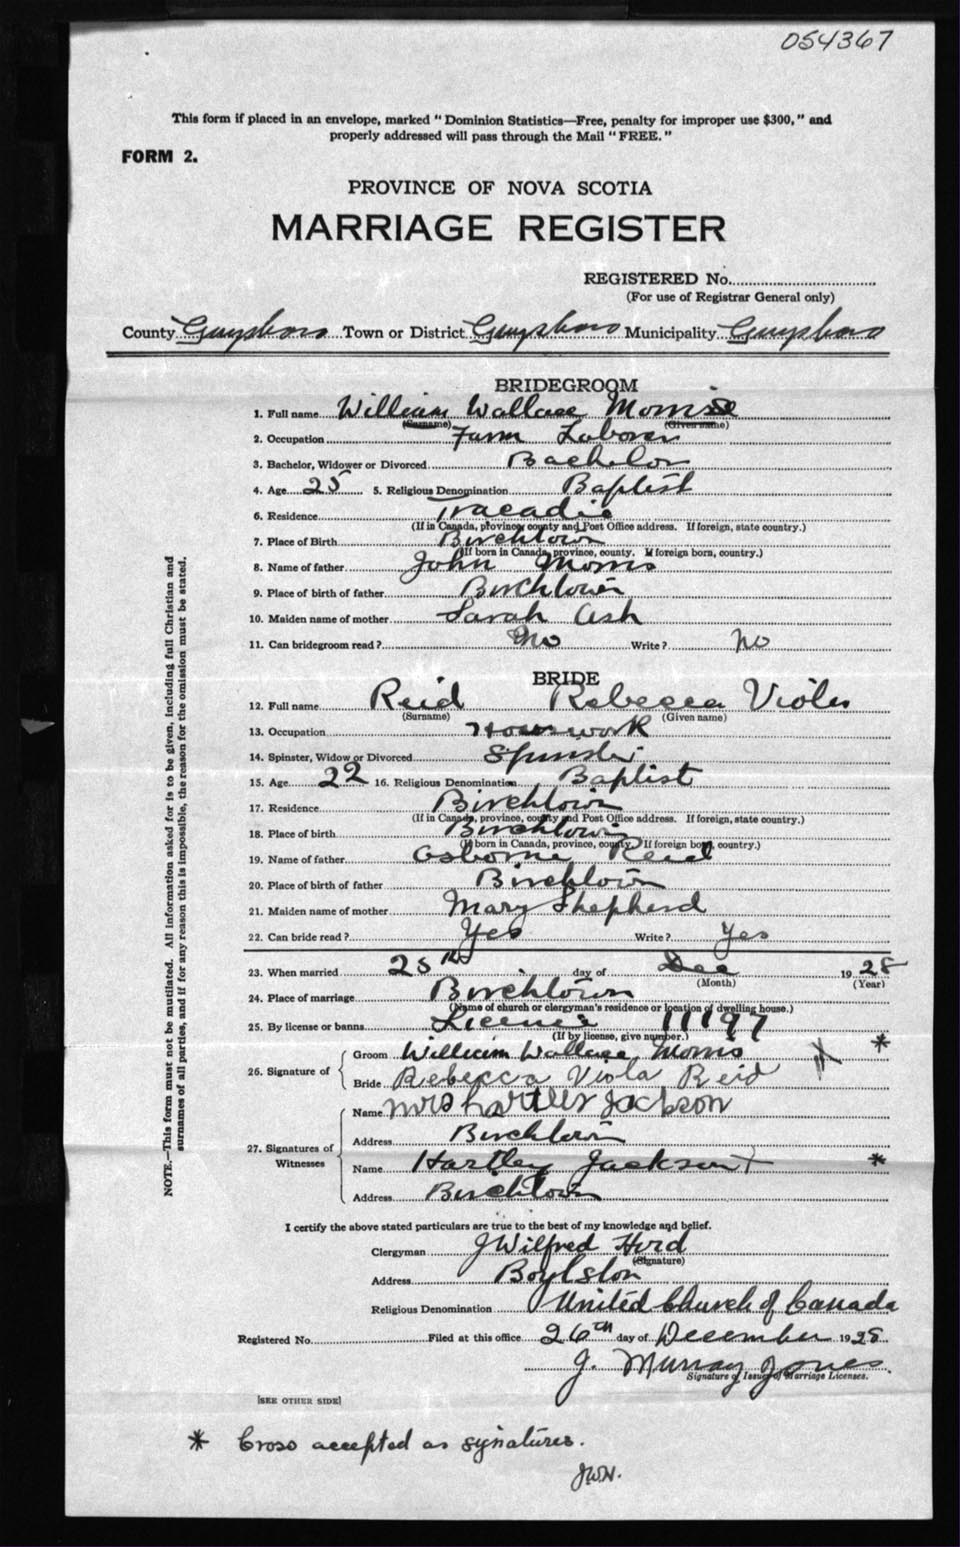 054367
This form if placed in an envelope, marked "Dominion Statistics—Free, penalty for improper use $300," and
properly addressed will pass through the Mail "FREE."
FORM 2.
PROVINCE OF NOVA SCOTIA
MARRIAGE REGISTER
REGISTERED No.
(For use of Registrar General only)
County Guysboro Town or District Guysboro Municipality Guysboro
BRIDEGROOM
1. Full name William Wallace Morris
(Surname) (Given name)
2. Occupation Farm Laborer
3. Bachelor, Widower or Divorced Bachelor
4. Age 25 5. Religious Denomination Baptist
6. Residence Tracadie
(If in Canada, province, county and Post Office address. If foreign, state country.)
7. Place of Birth Birchtown
(If born in Canada, province, county. If foreign born, country.)
8. Name of father John Morris
9. Place of birth of father Birchtown
10. Maiden name of mother Sarah Ash
11. Can bridegroom read? No Write? No
BRIDE
12. Full name Reid Rebecca Viola
(Surname) (Given name)
13. Occupation Housework
14. Spinster, Widow or Divorced Spinster
15. Age 22 16. Religious Denomination Baptist
17. Residence Birchtown
(If in Canada, province, county and Post Office address. If foreign, state country.)
18. Place of birth Birchtown
(If born in Canada, province, county. If foreign born, country.)
19. Name of father Osborne Reid
20. Place of birth of father Birchtown
21. Maiden name of mother Mary Shepherd
22. Can bride read? Yes Write? Yes
23. When married 25th day of Dec 1928
(Month) (Year)
24. Place of marriage Birchtown
(Name of church or clergyman's residence or location of dwelling house.)
25. By license or banns License 11197
(If by license, give number.)
26. Signature of Groom William Wallace Morris X *
Bride Rebecca Viola Reid
27. Signatures of Witnesses
Name Mrs Hartley Jackson
Address Birchtown
Name Hartley Jackson + *
Address Birchtown
I certify the above stated particulars are true to the best of my knowledge and belief.
Clergyman J Wilfred Hord
(Signature)
Address Boylston
Religious Denomination United Church of Canada
Registered No. Filed at this office 26th day of December 1928
J. Murray Jones
Signature of Issuer of Marriage Licenses.
[SEE OTHER SIDE]
* Cross accepted as signatures.
JWH.
NOTE.—This form must not be mutilated. All information asked for is to be given, including full Christian and
surnames of all parties, and if for any reason this is impossible, the reason for the omission must be stated.